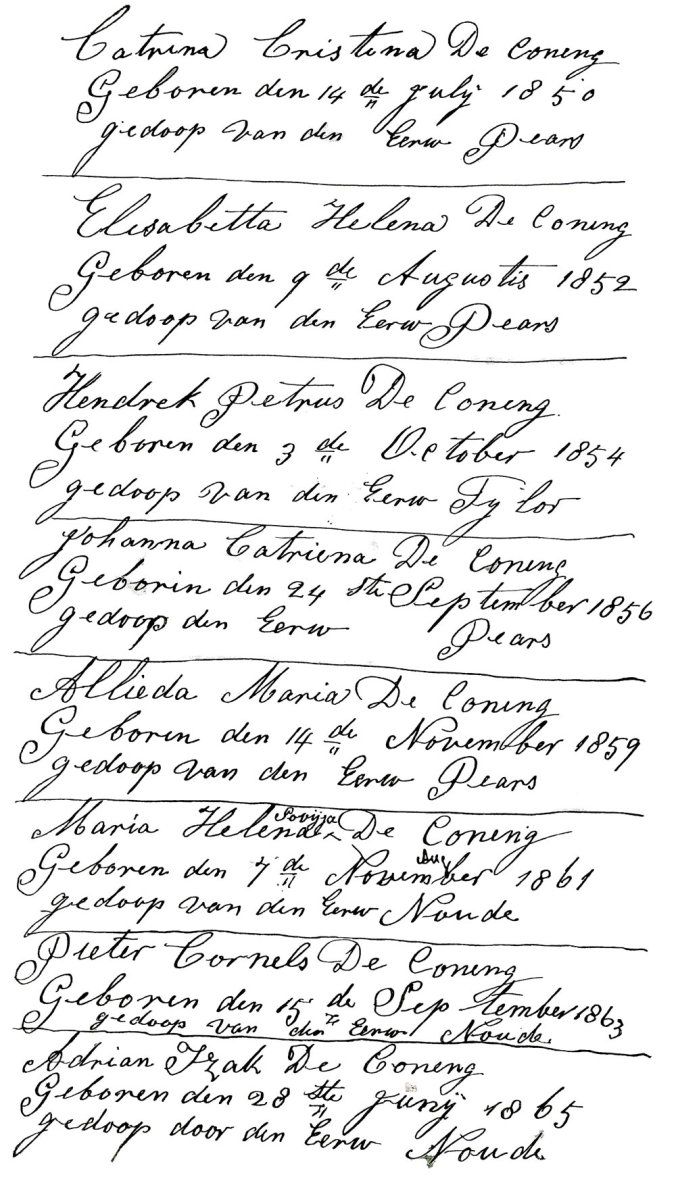 Catrina Cristina De Coning
Geboren den 14 de july 1850
gedoop van den Eerw Pears
Elisabetta Helena De Coning
Geboren den 9 de Augustis 1852
gedoop van den Eerw Pears
Hendrek Petrus De Coning
Geboren den 3 de October 1854
gedoop van den Eerw Tylor
Johanna Catriena De Coning
Geborin den 24 ste September 1856
gedoop den Eerw Pears
Allieda Maria De Coning
Geborin den 14 de November 1859
gedoop van den Eerw Pears
Maria Helena Sovijja De Coning
Geboren den 7 de November 1861
gedoop van den Eerw Noude
Pieter Cornels De Coning
Geboren den 15 de September 1863
gedoop van den Eerw Noude
Adrian Izak De Coning
Geboren den 28 ste Junij 1865
gedoop door den Eerw Noude